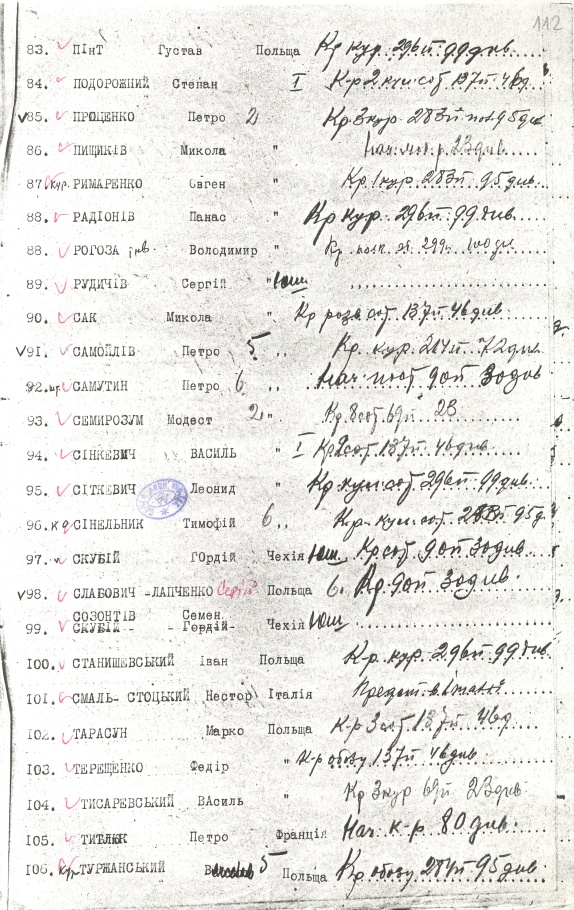 112
83. ПІнТ Густав Польща Кр кур. 296п 99див
84. ПОДОРОЖНИЙ Степан I К-р 2 кул. сот 137п 46д
V85. ПРОЦЕНКО Петро 2 Кр. 3 кур. 283п 95див
86. ПИЩИКІВ Микола " 23див.
87. кур. РИМАРЕНКО Євген " Кр 1 кур. 283п 95див.
88. РАДІОНІВ Панас " Кр кур. 296п 99див
88. РОГОЗА Володимир " Кр. 299п 100див
89. РУДИЧІВ Сергій " Юш
90. САК Микола " Кр розв сот 137п 46див
V91. САМОЙЛІВ Петро 5. ,, Кр. кур. 284п 72див
92. САМУТИН Петро 6. ,, 9оп 30див
93. СЕМИРОЗУМ Модест 2 " Кр 8сот 69п 23
94. СІНКЕВИЧ ВАСИЛЬ " I Кр 2сот 137п 46див
95. СІТКЕВИЧ Леонид " Кр кул. сот 296п 99див
96. СІНЕЛЬНИК Тимофій 6 ,, К-р. кул. сот. 283п 95д
97. СКУБІЙ ГОрдій Чехія Юш. Кр сот 9оп 30див
V98. СЛАБОВИЧ -ЛАПЧЕНКО Сергій Польща 6. Кр 9оп 30див.
СОЗОНТІВ Семен
99. СКУБІЙ Гордій Чехія Юш
I00. СТАНИШЕВСЬКИЙ Іван Польща К-р. кур. 296п 99див
I0I. СМАЛЬ- СТОЦЬКИЙ Нестор Італія
I02. ТАРАСУН Марко Польща К-р 3 сот 137п 46д
I03. ТЕРЕЩЕНКО Федір " К-р обозу 137п 46див
I04. ТИСАРЕВСЬКИЙ ВАсиль " Кр 3 кур 69п 23див
I05. Петро Франція Нач. к-р. 80 див.
I06. ТУРЖАНСЬКИЙ 5 Польща Кр обозу 284п 95див